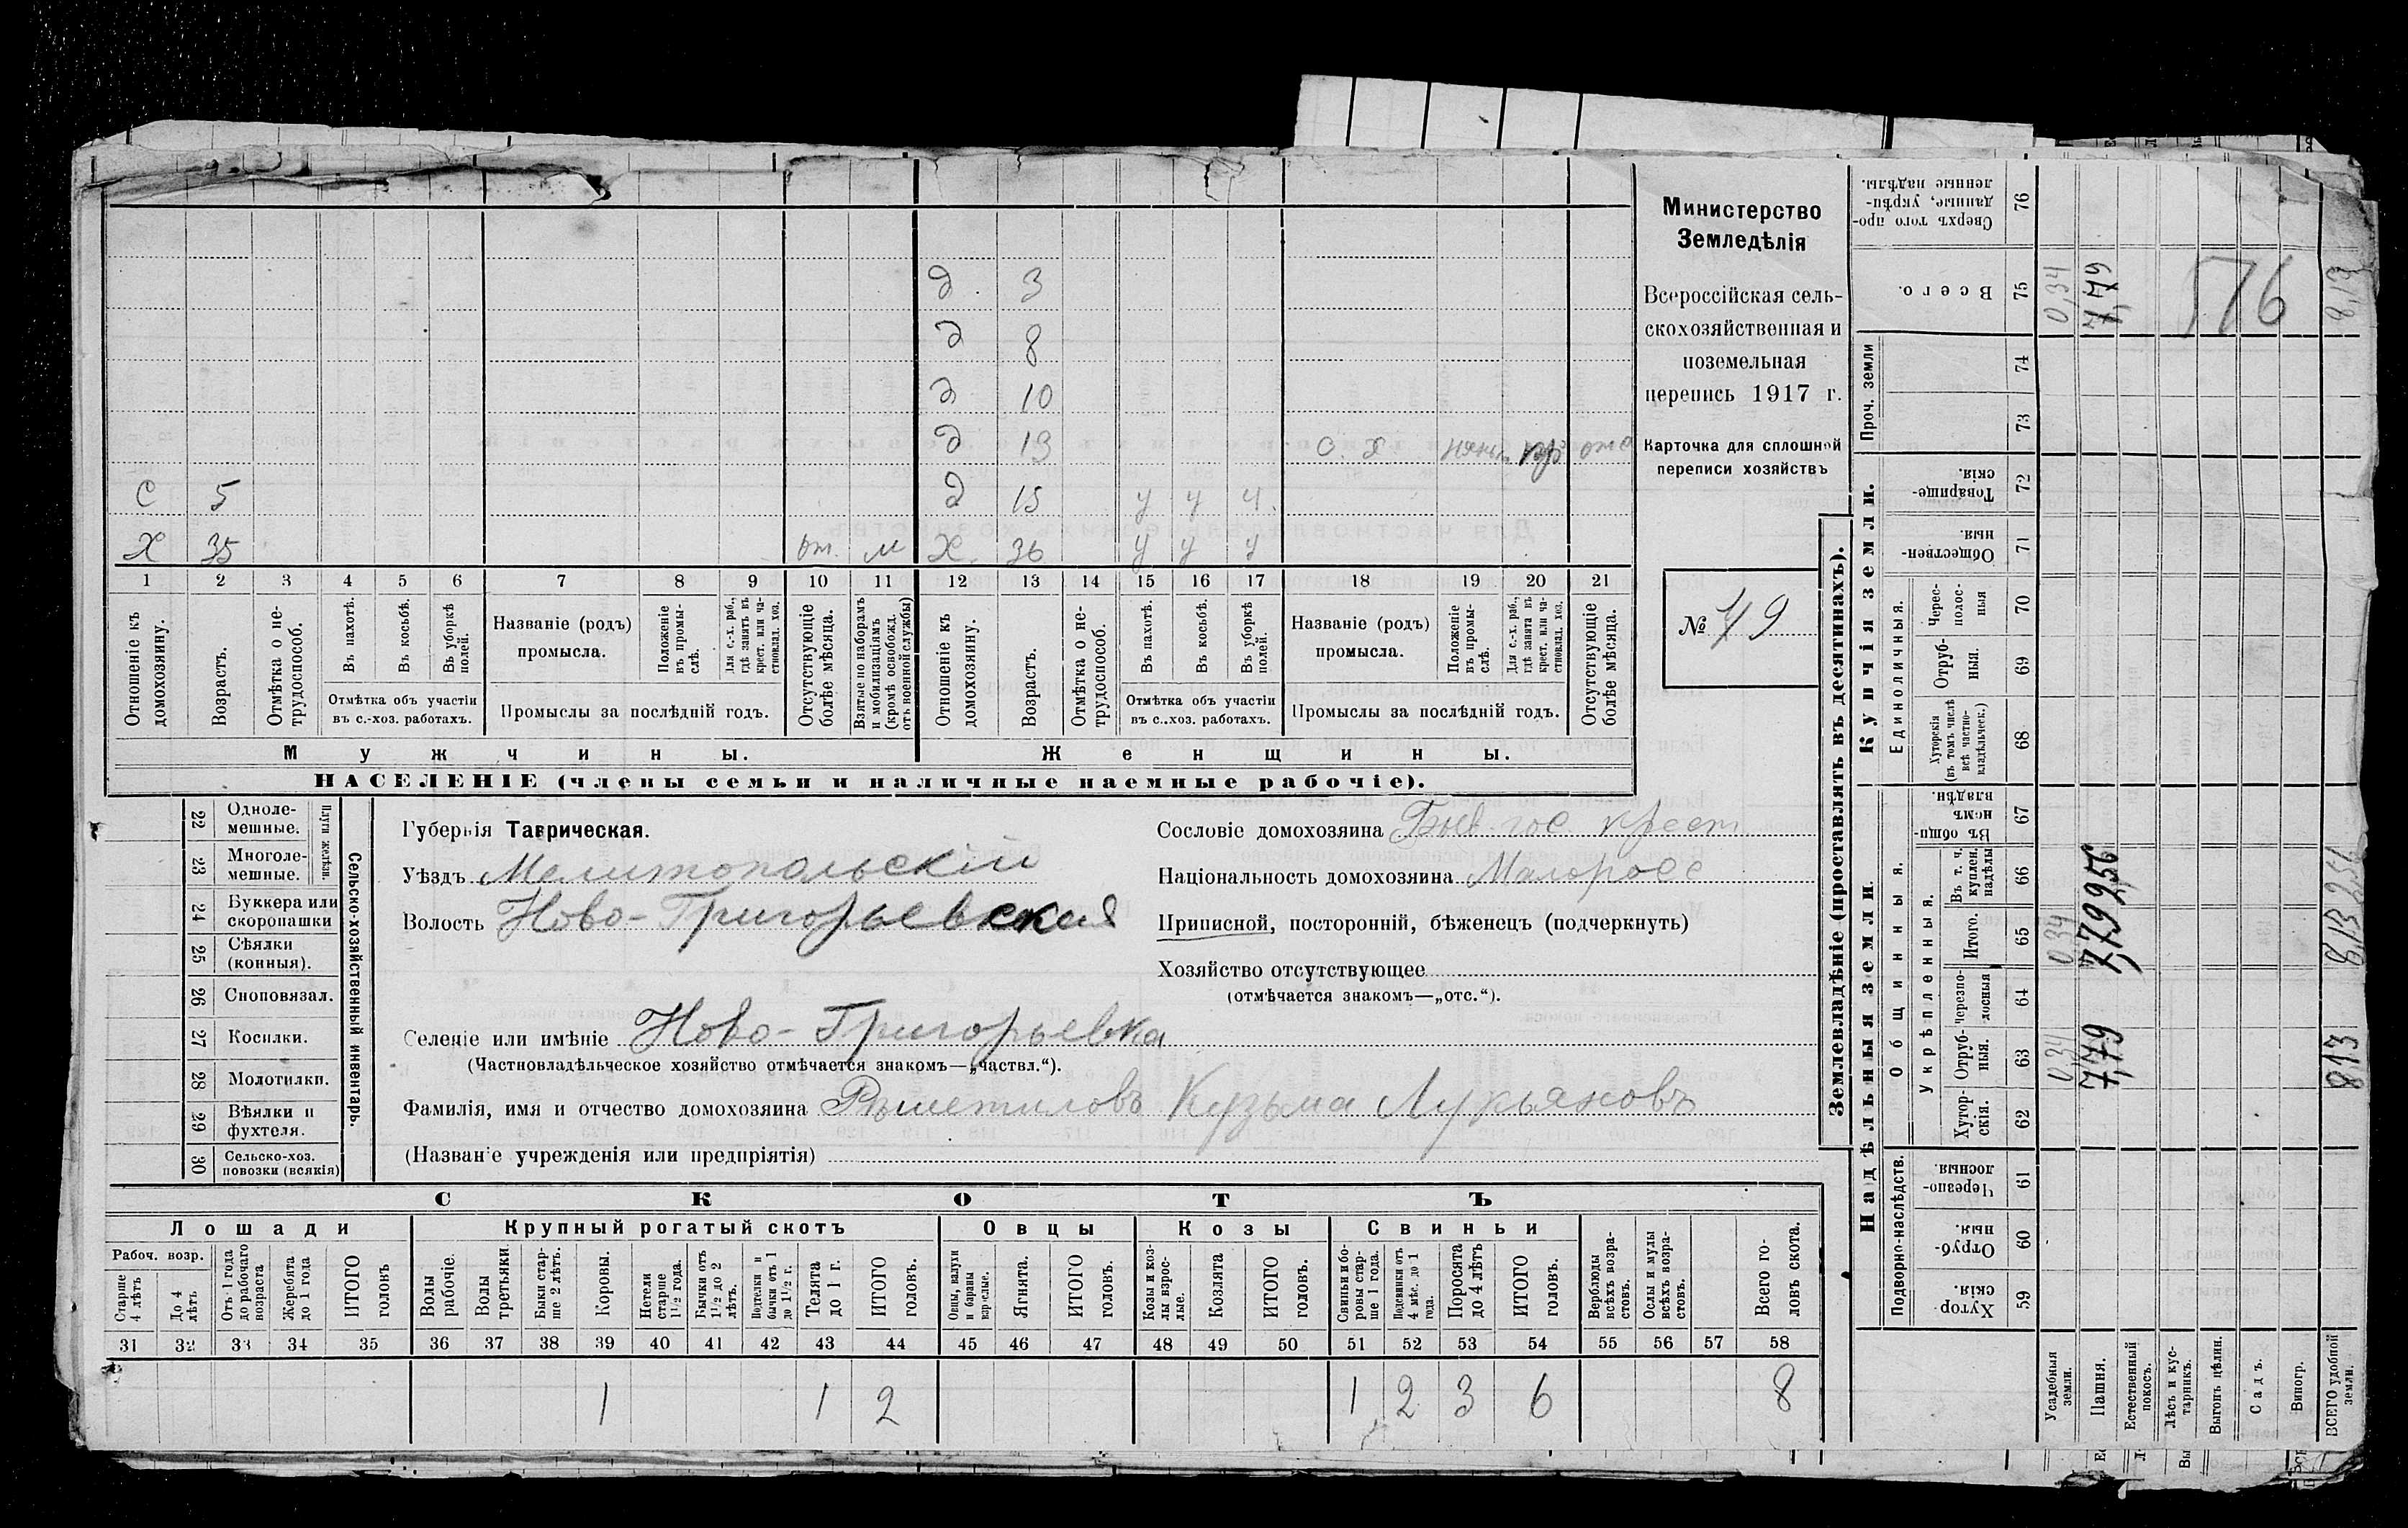 д. 3
д 8
д 10
д 13 О. Х
С 5 д 15 у у у
Х 35 от. м Х. 36 у у у
1 2 3 4 5 6 7 8 9 10 11 12 13 14 15 16 17 18 19 20 21
Отношеніе къ домохозяину.
Возрастъ.
Отмѣтка о не-трудоспособ.
Въ пахотѣ.
Въ косьбѣ.
Въ уборкѣ полей.
Отмѣтка объ участіи
въ с.-хоз. работахъ.
Названіе (родъ)
промысла.
Положеніе въ промы-слѣ.
Для с.-х. раб., гдѣ занятъ въ крест. или ча-стновлад. хоз.
Промыслы за послѣдній годъ.
Отсутствующіе болѣе мѣсяца.
Взятые по наборамъ и мобилизаціямъ (кромѣ освобожд. отъ военной службы)
Отношеніе къ домохозяину.
Возрастъ.
Отмѣтка о не-трудоспособ.
Въ пахотѣ.
Въ косьбѣ.
Въ уборкѣ полей.
Отмѣтка объ участіи
въ с.-хоз. работахъ.
Названіе (родъ)
промысла.
Положеніе въ промы-слѣ.
Для с.-х. раб., гдѣ занята въ крест. или ча-стновлад. хоз.
Промыслы за послѣдній годъ.
Отсутствующіе болѣе мѣсяца.
Мужчины. Женщины.
НАСЕЛЕНІЕ (члены семьи и наличные наемные рабочіе).
Министерство
Земледѣлія
Всероссійская сель-
скохозяйственная и
поземельная
перепись 1917 г.
Карточка для сплошной
переписи хозяйствъ
№ 79
22 Одноле-мешные.
23 Многоле-мешные.
Плуги желѣзн.
24 Буккера или скоропашки
25 Сѣялки (конныя).
26 Сноповязал.
27 Косилки.
28 Молотилки.
29 Вѣялки и фухтеля.
30 Сельско-хоз. повозки (всякія)
Сельско-хозяйственный инвентарь.
Губернія Таврическая.
Уѣздъ Мелитопольскій
Волость Ново-Григорьевская
Сословіе домохозяина Быв. гос. крест
Національность домохозяина Малоросс
Приписной, посторонній, бѣженец (подчеркнуть)
Хозяйство отсутствующее
(отмѣчается знакомъ—„отс.“).
Селеніе или имѣніе Ново-Григорьевка
(Частновладѣльческое хозяйство отмѣчается знакомъ—„частвл.“).
Фамилія, имя и отчество домохозяина Рѣшетиловъ Кузьма Лукьяновъ
(Названіе учрежденія или предпріятія)
СКОТЪ
Лошади Крупный рогатый скотъ Овцы Козы Свиньи
Рабоч. возр.
Старше 4 лѣтъ
До 4 лѣтъ
Отъ 1 года до рабочаго возраста
Жеребята до 1 года
ИТОГО головъ
Волы рабочіе.
Волы третьяки.
Быки стар-ше 2 лѣтъ.
Коровы.
Нетели старше 1½ года.
Бычки отъ 1½ до 2 лѣтъ.
Подтелки и бычки отъ 1 до 1½ г.
Телята до 1 г.
ИТОГО головъ.
Овцы, валухи и бараны взрослые.
Ягнята.
ИТОГО головъ.
Козы и коз-лы взрос-лые.
Козлята
ИТОГО головъ.
Свиньи и бо-ровы стар-ше 1 года.
Подсвинки отъ 4 мѣс. до 1 года.
Поросята до 4 лѣтъ
ИТОГО головъ.
Верблюды всѣхъ возра-стовъ.
Ослы и мулы всѣхъ возра-стовъ.
Всего го-ловъ скота.
31 32 33 34 35 36 37 38 39 40 41 42 43 44 45 46 47 48 49 50 51 52 53 54 55 56 57 58
1 1 2 1 2 3 6 8
Землевладѣніе (проставлять въ десятинахъ).
Надѣльныя земли. Купчія земли. Проч. земли
Подворно-наслѣдств.
Общинныя.
Укрѣпленныя.
Единоличныя.
Хутор-скія. 59
Отруб-ныя. 60
Черезпо-лосныя. 61
Хутор-скія. 62
Отруб-ныя. 63
Черезпо-лосныя 64
Итого. 65
Въ т. ч. куплен. надѣлы 66
Въ общин-номъ владѣн. 67
Хуторскія (въ томъ числѣ всѣ частно-владѣльческ.) 68
Отруб-ныя. 69
Черес-полос-ныя 70
Обществен-ныя. 71
Товарище-скія. 72
73
74
Всего. 75
Сверхъ того про-данные, укрѣп-ленные надѣлы. 76
Усадебныя земли. 0,34 0,34 0,34
Пашня. 7,79 7,79 256 7,79
Естественный покосъ.
Лѣсъ и кус-тарникъ.
Выгонъ цѣлин.
Садъ.
Виногр.
ВСЕГО удобной земли. 8,13 8,13 256 8,13
576